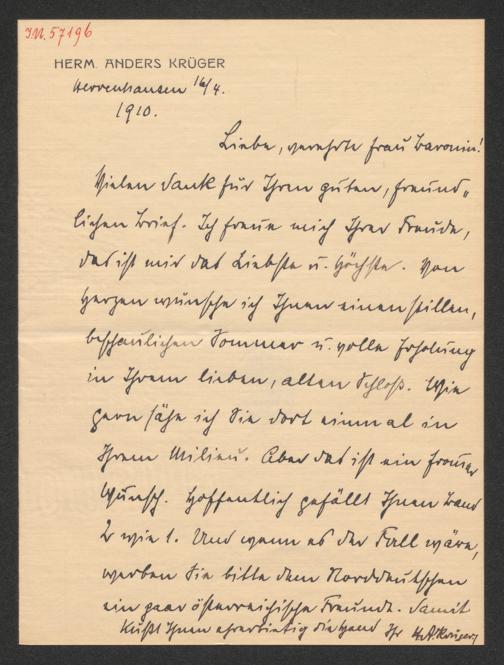 I.N. 57196
HERM. ANDERS KRÜGER
Herrenhausen 16/4.
1910.
Liebe, verehrte Frau Baronin!
Vielen Dank für Ihren guten, freund-
lichen Brief. Ich freue mich Ihrer Freude,
das ist mir das Liebste u. Höchste. Von
Herzen wünsche ich Ihnen einen stillen,
beschaulichen Sommer u. volle Erholung
in Ihrem lieben, alten Schloß. Wie
gern sähe ich Sie dort einmal in
Ihrem Milieu. Aber das ist ein frommer
Wunsch. Hoffentlich gefällt Ihnen Band
2 wie 1. Und wenn es der Fall wäre,
werben Sie bitte dem Norddeutschen
ein paar österreichische Freunde. Damit
küßt Ihnen ehrerbietig die Hand Ihr HAKrüger